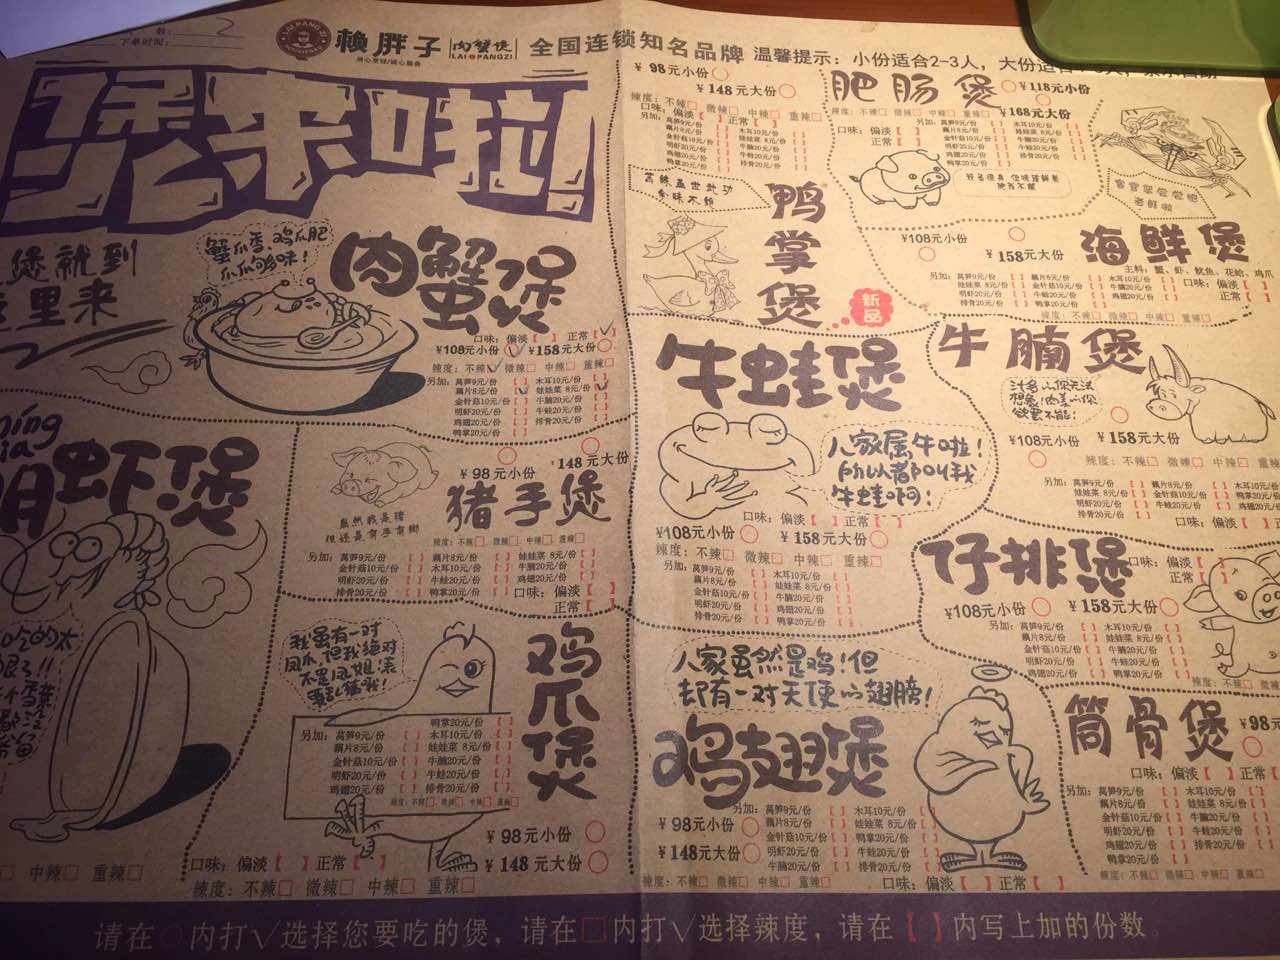 数: 2
下单时间:
赖胖子 肉蟹煲 LAI PANGZI
用心烹饪/诚心服务
全国连锁知名品牌
温馨提示: 小份适合2-3人, 大份适
煲来啦!
煲就到
里来
蟹爪香 鸡爪肥
爪爪够味!
肉蟹煲
口味: 偏淡【 】正常【√】
¥108元小份 √ ¥158元大份
辣度: 不辣 微辣 中辣 重辣
另加: 莴笋9元/份【 】 木耳10元/份【 】
藕片8元/份【√】 娃娃菜 8元/份【√】
金针菇10元/份【 】 牛腩20元/份【 】
明虾20元/份【 】 牛蛙20元/份【 】
鸡翅20元/份【 】 排骨20元/份【 】
鸭掌20元/份【 】
¥98元小份
¥148元大份
辣度: 不辣 微辣 中辣 重辣
口味: 偏淡【 】正常【 】
另加: 莴笋9元/份 木耳10元/份
藕片8元/份 娃娃菜 8元/份
金针菇10元/份 牛腩20元/份
明虾20元/份 牛蛙20元/份
鸡翅20元/份 排骨20元/份
鸭掌20元/份
鸭掌煲
新品
肥肠煲
¥118元小份
¥168元大份
辣度: 不辣 微辣 中辣 重辣
口味: 偏淡【 】
正常【 】
另加: 莴笋9元/份 木耳10元/份
藕片8元/份 娃娃菜 8元/份
金针菇10元/份 牛腩20元/份
明虾20元/份 牛蛙20元/份
鸡翅20元/份 排骨20元/份
鸭掌20元/份
海鲜煲
¥108元小份
¥158元大份
主料: 蟹、虾、鱿鱼、花蛤、鸡爪
口味: 偏淡【 】
正常【 】
另加: 莴笋9元/份 藕片8元/份 金针菇10元/份
娃娃菜 8元/份 木耳10元/份 牛腩20元/份
明虾20元/份 牛蛙20元/份 鸡翅20元/份
排骨20元/份 鸭掌20元/份
辣度: 不辣 微辣 中辣 重辣
牛蛙煲
人家属牛啦!
所以都叫我
牛蛙啊!
口味: 偏淡【 】正常【 】
¥108元小份 ¥158元大份
辣度: 不辣 微辣 中辣 重辣
另加: 莴笋9元/份 木耳10元/份
藕片8元/份 娃娃菜 8元/份
金针菇10元/份 牛腩20元/份
明虾20元/份 鸡翅20元/份
排骨20元/份 鸭掌20元/份
牛腩煲
¥108元小份 ¥158元大份
辣度: 不辣 微辣 中辣 重辣
另加: 莴笋9元/份 藕片8元/份 木耳10元/份
娃娃菜 8元/份 金针菇10元/份
明虾20元/份 牛蛙20元/份
排骨20元/份 鸭掌20元/份
口味: 偏淡【 】
正常【 】
ming
ia
明虾煲
中辣 重辣
¥98元小份 ¥148元大份
猪手煲
虽然我是猪
但还是有手有脚
辣度: 不辣、微辣、中辣、重辣
另加: 莴笋9元/份 藕片8元/份 娃娃菜 8元/份
金针菇10元/份 木耳10元/份 牛腩20元/份
明虾20元/份 牛蛙20元/份 鸡翅20元/份
排骨20元/份 鸭掌20元/份
口味: 偏淡【 】
正常【 】
仔排煲
口味: 偏淡【 】
正常【 】
¥108元小份 ¥158元大份
另加: 莴笋9元/份 木耳10元/份
藕片8元/份 娃娃菜 8元/份
金针菇10元/份 牛腩20元/份
明虾20元/份 牛蛙20元/份
鸡翅20元/份 鸭掌20元/份
辣度: 不辣 微辣
我虽有一对
凤爪,但我绝对
不是凤姐,不
要乱猜哦!
鸡爪煲
鸭掌20元/份
另加: 莴笋9元/份 木耳10元/份
藕片8元/份 娃娃菜 8元/份
金针菇10元/份 牛腩20元/份
明虾20元/份 牛蛙20元/份
鸡翅20元/份 排骨20元/份
辣度: 不辣、微辣、中辣、重辣
¥98元小份
¥148元大份
口味: 偏淡【 】正常【 】
辣度: 不辣 微辣 中辣 重辣
人家虽然是鸡!但
却有一对天使的翅膀!
鸡翅煲
¥98元小份
¥148元大份
另加: 莴笋9元/份 木耳10元/份
藕片8元/份 娃娃菜 8元/份
金针菇10元/份 牛蛙20元/份
明虾20元/份 鸭掌20元/份
牛腩20元/份 排骨20元/份
辣度: 不辣 微辣 中辣 重辣
口味: 偏淡【 】正常【 】
筒骨煲
¥98元
口味: 偏淡【 】正常
另加: 莴笋9元/份 木耳10元/份
藕片8元/份 娃娃菜 8元/份
金针菇10元/份 牛腩20元/份
明虾20元/份 牛蛙20元/份
鸡翅20元/份 排骨20元/份
鸭掌20元/份
辣度: 不辣 微辣 中辣 重辣
请在○内打√选择您要吃的煲,请在□内打√选择辣度,请在【 】内写上加的份数。